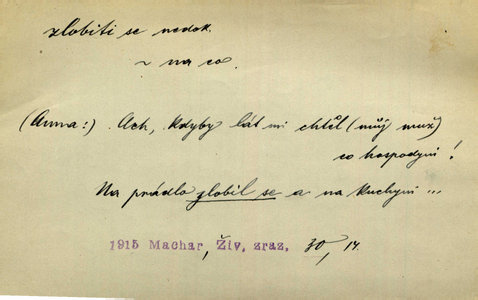 zlobiti se nedok.
~ na co.
(Anna:) Ach, kdyby lát mi chtěl (můj muž)
co hospodyni!
Na prádlo zlobil se a na kuchyni ...
1915 Machar, Živ, zraz, 30, 14.